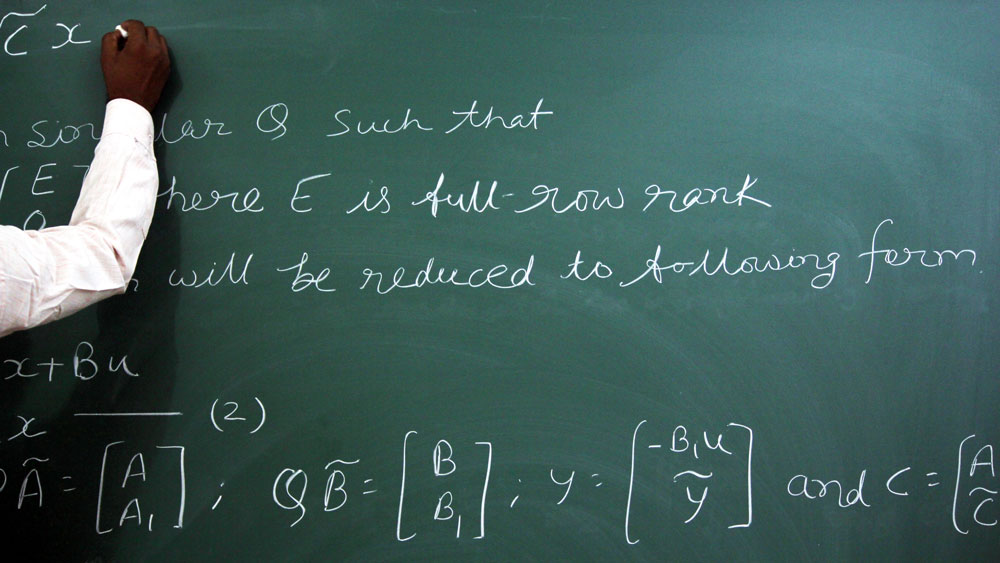 C̃ x
sin lar Q such that
[E here E is full-row rank
will be reduced to following form.
x + Bu
x — (2)
Ã = [A A₁] ; Q B̃ = [B B₁] ; y = [-B₁u ỹ] and C = [A C̃